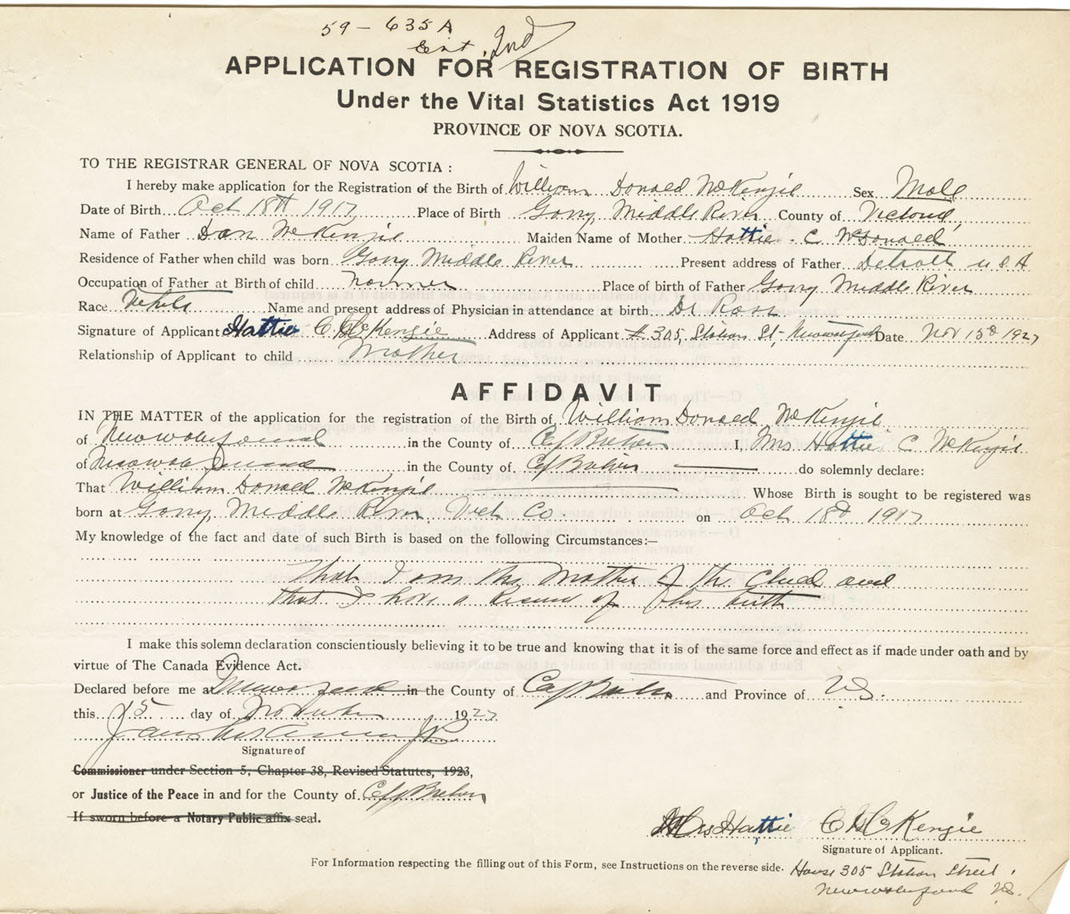 59 - 635A
Ent. 2nd
APPLICATION FOR REGISTRATION OF BIRTH
Under the Vital Statistics Act 1919
PROVINCE OF NOVA SCOTIA.
TO THE REGISTRAR GENERAL OF NOVA SCOTIA :
I hereby make application for the Registration of the Birth of William Donald McKenzie Sex Male
Date of Birth Oct 18th 1917 Place of Birth Middle River County of Victoria,
Name of Father Dan McKenzie Maiden Name of Mother Hattie C McDonald
Residence of Father when child was born Middle River Present address of Father Detroit USA
Occupation of Father at Birth of child Place of birth of Father Middle River
Race White Name and present address of Physician in attendance at birth Dr Ross
Signature of Applicant Hattie C McKenzie Address of Applicant # 305, Station St, Date Nov 15th 1927
Relationship of Applicant to child Mother
AFFIDAVIT
IN THE MATTER of the application for the registration of the Birth of William Donald McKenzie
of in the County of Cap Breton I, Mrs Hattie C McKenzie
of in the County of Cap Breton do solemnly declare:
That William Donald McKenzie Whose Birth is sought to be registered was
born at Middle River Vict Co. on Oct 18th 1917
My knowledge of the fact and date of such Birth is based on the following Circumstances:—
that I am the Mother of the Child and
that I have a Record of this birth
I make this solemn declaration conscientiously believing it to be true and knowing that it is of the same force and effect as if made under oath and by
virtue of The Canada Evidence Act.
Declared before me at in the County of Cap Breton and Province of NS.
this 15 day of November 1927
Signature of
Commissioner under Section 5, Chapter 38, Revised Statutes, 1923,
or Justice of the Peace in and for the County of Cap Breton
If sworn before a Notary Public affix seal.
Mrs Hattie C McKenzie
Signature of Applicant.
For Information respecting the filling out of this Form, see Instructions on the reverse side.
House 305 Station Street.
NS.